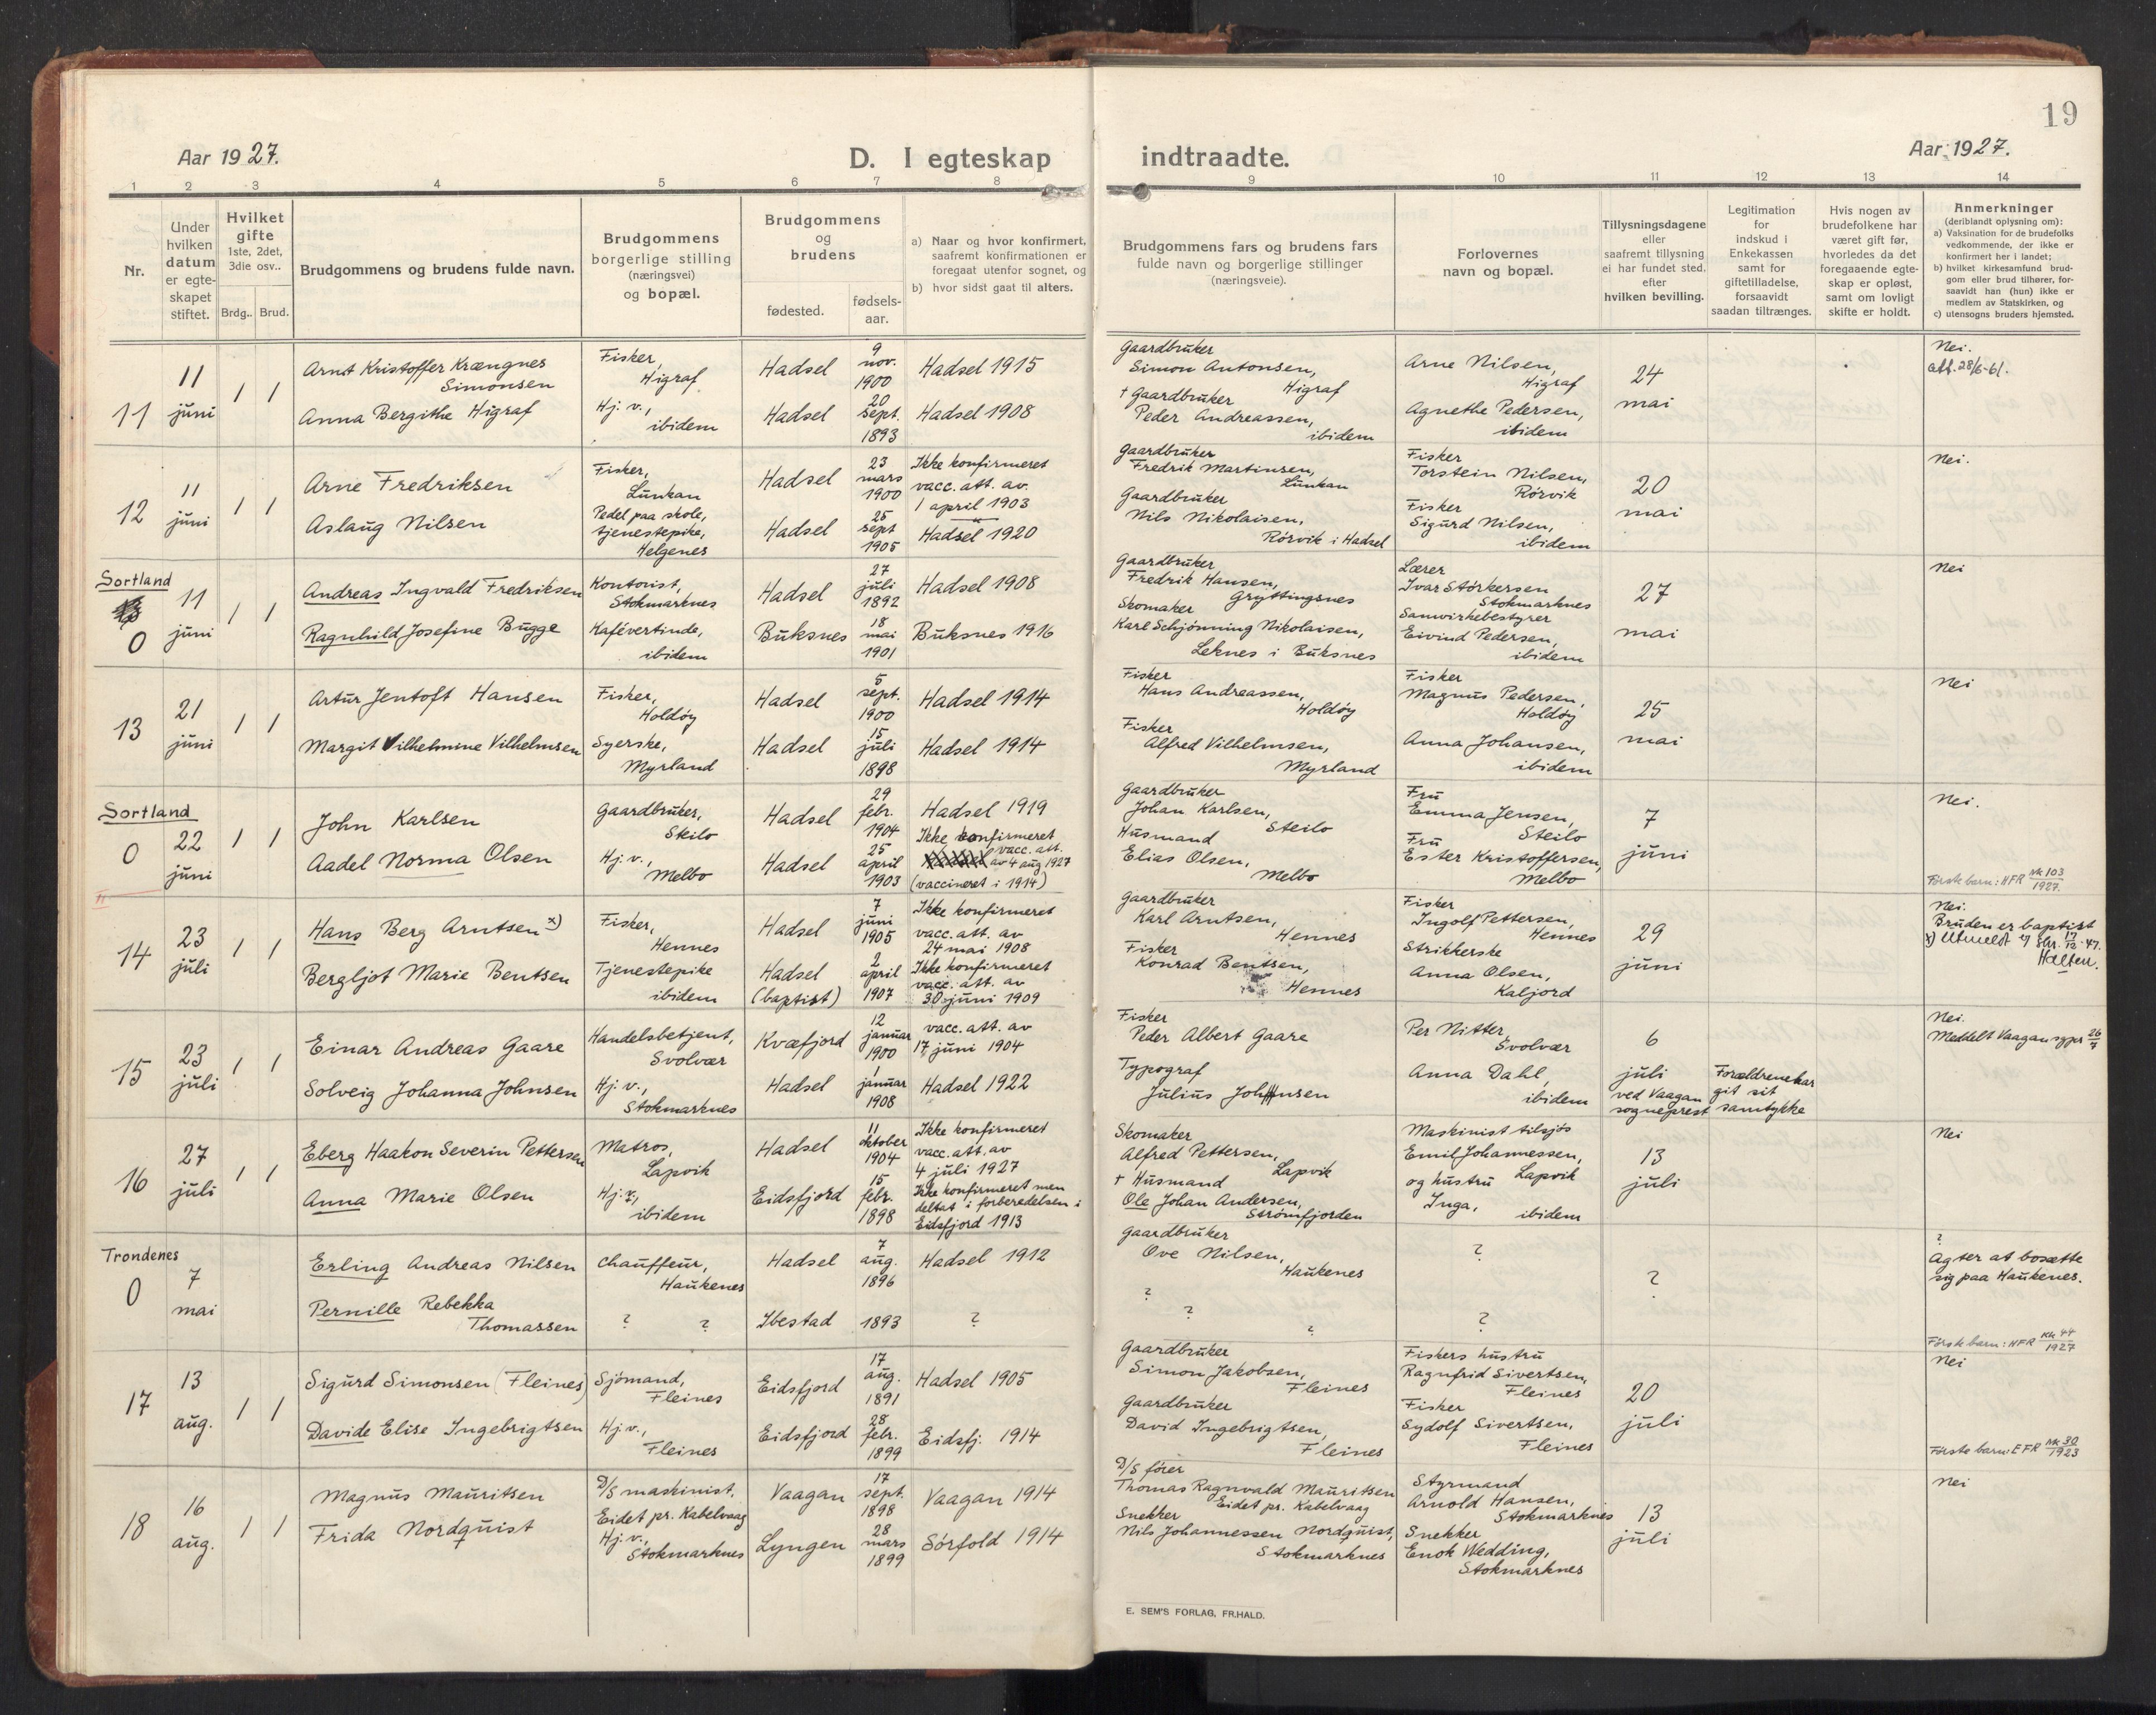 19
Aar 1927.
D. I egteskap
indtraadte.
Aar 1927.
1 2 3 4 5 6 7 8 9 10 11 12 13 14
Nr.
Under hvilken datum er egteskapet stiftet.
Hvilket gifte 1ste, 2det, 3die osv..
Brdg.. Brud.
Brudgommens og brudens fulde navn.
Brudgommens borgerlige stilling (næringsvei) og bopæl.
Brudgommens og brudens
fødested.
fødsels-aar.
a) Naar og hvor konfirmert, saafremt konfirmationen er foregaat utenfor sognet, og
b) hvor sidst gaat til alters.
Brudgommens fars og brudens fars fulde navn og borgerlige stillinger (næringsveie).
Forlovernes navn og bopæl.
Tillysningsdagene eller saafremt tillysning ei har fundet sted, efter hvilken bevilling.
Legitimation for indskud i Enkekassen samt for giftetilladelse, forsaavidt saadan tiltrænges.
Hvis nogen av brudefolkene har været gift før, hvorledes da det foregaaende egteskap er opløst, samt om lovligt skifte er holdt.
Anmerkninger (deriblandt oplysning om):
a) Vaksination for de brudefolks vedkommende, der ikke er konfirmert her i landet;
b) hvilket kirkesamfund brudgom eller brud tilhører, forsaavidt han (hun) ikke er medlem av Statskirken, og
c) utensogns bruders hjemsted.
11
11 juni
1 1
Arnt Kristoffer Krængnes Simonsen
Anna Bergithe Higraf
Fisker, Higraf
Hj. v., ibidem
Hadsel
Hadsel
9 nov. 1900
20 sept. 1893
Hadsel 1915
Hadsel 1908
Gaardbruker Simon Antonsen, Higraf
† Gaardbruker Peder Andreassen, ibidem
Arne Nilsen, Higraf
Agnethe Pedersen, ibidem
24 mai
Nei.
att. 28/6-61.
12
11 juni
1 1
Arne Fredriksen
Aslaug Nilsen
Fisker, Lunkan
Pedel paa skole, tjenestepike, Helgenes
Hadsel
Hadsel
23 mars 1900
25 sept 1905
Ikke konfirmeret vacc. att. av 1 april 1903
Hadsel 1920
Gaardbruker Fredrik Martinsen, Lunkan
Gaardbruker Nils Nikolaisen, Rørvik i Hadsel
Fisker Torstein Nilsen, Rørvik
Fisker Sigurd Nilsen, ibidem
20 mai
Nei.
Sortland
0
11 juni
1 1
Andreas Ingvald Fredriksen
Ragnhild Josefine Bugge
Kontorist, Stokmarknes
Kafévertinde, ibidem
Hadsel
Buksnes
27 juli 1892
18 mai 1901
Hadsel 1908
Buksnes 1916
Gaardbruker Fredrik Hansen, Gryttingsnes
Skomaker Karl Schjønning Nikolaisen, Leknes i Buksnes
Lærer Ivar Størkersen Stokmarknes
Samvirkebestyrer Eivind Pedersen, ibidem
27 mai
Nei
13
21 juni
1 1
Artur Jentoft Hansen
Margit Vilhelmine Vilhelmsen
Fisker, Holdøy
Syerske, Myrland
Hadsel
Hadsel
5 sept. 1900
15 juli 1898
Hadsel 1914
Hadsel 1914
Fisker Hans Andreassen, Holdøy
Fisker Alfred Vilhelmsen, Myrland
Fisker Magnus Pedersen, Holdøy
Anna Johansen, ibidem
25 mai
Nei
Sortland
0
22 juni
1 1
John Karlsen
Aadel Norma Olsen
Gaardbruker, Steilo
Hj. v., Melbo
Hadsel
Hadsel
29 febr. 1904
25 april 1903
Hadsel 1919
Ikke konfirmeret vacc. att. av 4 aug 1927 (vaccineret i 1914)
Gaardbruker Johan Karlsen, Steilo
Husmand Elias Olsen, Melbo
Fru Emma Jensen, Steilo
Fru Ester Kristoffersen, Melbo
7 juni
Nei.
Første barn: HFR Nk 103 1927.
14
23 juli
1 1
Hans Berg Arntsen x)
Bergljot Marie Bentsen
Fisker, Hennes
Tjenestepike ibidem
Hadsel
Hadsel (baptist)
7 juni 1905
2 april 1907
Ikke konfirmeret vacc. att. av 24 mai 1908
Ikke konfirmeret vacc. att. av 30 juni 1909
Gaardbruker Karl Arntsen, Hennes
Fisker Konrad Bentsen, Hennes
Fisker Ingolf Pettersen, Hennes
Strikkerske Anna Olsen, Kaljord
29 juni
Nei.
Bruden er baptist
x) Utmeldt
15
23 juli
1 1
Einar Andreas Gaare
Solveig Johanna Johnsen
Handelsbetjent, Svolvær
Hj. v., Stokmarknes
Kvæfjord
Hadsel
12 januar 1900
1 januar 1908
vacc. att. av 17 juni 1904
Hadsel 1922
Fisker Peder Albert Gaare
Typograf Julius Johnsen
Per Nitter, Svolvær
Anna Dahl, ibidem
6 juli ved Vaagan sogneprest
Forældrene har git sit samtykke
Nei.
Meddelt Vaagan sgpr 26/7
16
27 juli
1 1
Eberg Haakon Severin Pettersen
Anna Marie Olsen
Matros, Lapvik
Hj. v., ibidem
Hadsel
Eidsfjord
11 oktober 1904
15 febr. 1898
Ikke konfirmeret vacc. att. av 4 juli 1927
Ikke konfirmeret men deltat i forberedelsen i Eidsfjord 1913
Skomaker Alfred Pettersen, Lapvik
† Husmand Ole Johan Andersen, Strømfjorden
Maskinist tilsjøs Emil Johannessen, Lapvik
og hustru Inga, ibidem
13 juli
Nei
Trondenes
0
7 mai
Erling Andreas Nilsen
Pernille Rebekka Thomassen
Chauffeur, Haukenes
? ?
Hadsel
Ibestad
7 aug. 1896
1893
Hadsel 1912
?
Gaardbruker Ove Nilsen, Haukenes
? ? ?
?
?
?
?
Agter at bosætte sig paa Haukenes.
Første barn: HFR Kk 44 1927
17
13 aug.
1 1
Sigurd Simonsen (Fleines)
Davide Elise Ingebrigtsen
Sjømand, Fleines
Hj. v., Fleines
Eidsfjord
Eidsfjord
17 aug. 1891
28 febr. 1899
Hadsel 1905
Eidsfj. 1914
Gaardbruker Simon Jakobsen, Fleines
Gaardbruker David Ingebrigtsen, Fleines
Fiskers hustru Ragnfrid Sivertsen, Fleines
Fisker Sydolf Sivertsen, Fleines
20 juli
Nei
Første barn: EFR Nk 30 1923
18
16 aug.
1 1
Magnus Mauritsen
Frida Nordquist
D/S maskinist, Eidet pr. Kabelvaag
Hj. v., Stokmarknes
Vaagan
Lyngen
17 sept. 1898
28 mars 1899
Vaagan 1914
Sørfold 1914
D/S fører Thomas Ragnvald Mauritsen Eidet pr. Kabelvaag
Snekker Nils Johannessen Nordquist, Stokmarknes
Styrmand Arnold Hansen, Stokmarknes
Snekker Enok Wedding, Stokmarknes
13 juli
Nei
E. SEM'S FORLAG, FR.HALD.